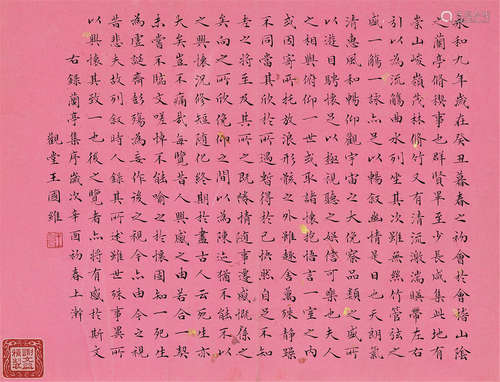 永和九年歲在癸丑暮春之初會於會稽山陰
之蘭亭脩禊事也群賢畢至少長咸集此地有
崇山峻嶺茂林脩竹又有清流激湍暎帶左右
引以為流觴曲水列坐其次雖無絲竹管弦之
盛一觴一詠亦足以暢敘幽情是日也天朗氣
清惠風和暢仰觀宇宙之大俛察品類之盛所
以遊目騁懷足以極視聽之娛信可樂也夫人
之相與俯仰一世或取諸懷抱悟言一室之內
或因寄所托放浪形骸之外雖趣舍萬殊靜躁
不同當其欣於所遇暫得於己快然自足不知
老之將至及其所之既惓情隨事遷感慨係之
矣向之所欣俛仰之間以為陳迹猶不能不以
之興懷況修短隨化終期於盡古人云死生亦
大矣豈不痛哉每覽昔人興感之由若合一契
未嘗不臨文嗟悼不能喻之於懷固知一死生
為虛誕齊彭殤為妄作後之視今亦由今之視
昔悲夫故列敘時人錄其所述雖世殊事異所
以興懷其致一也後之覽者亦將有感於斯文
右錄蘭亭集序歲次辛酉初春上澣
觀堂王國維